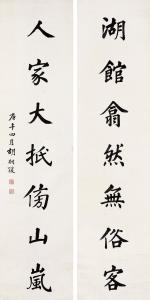 湖館翕然無俗客
人家大抵傍山嵐
庚午四月胡嗣瑗